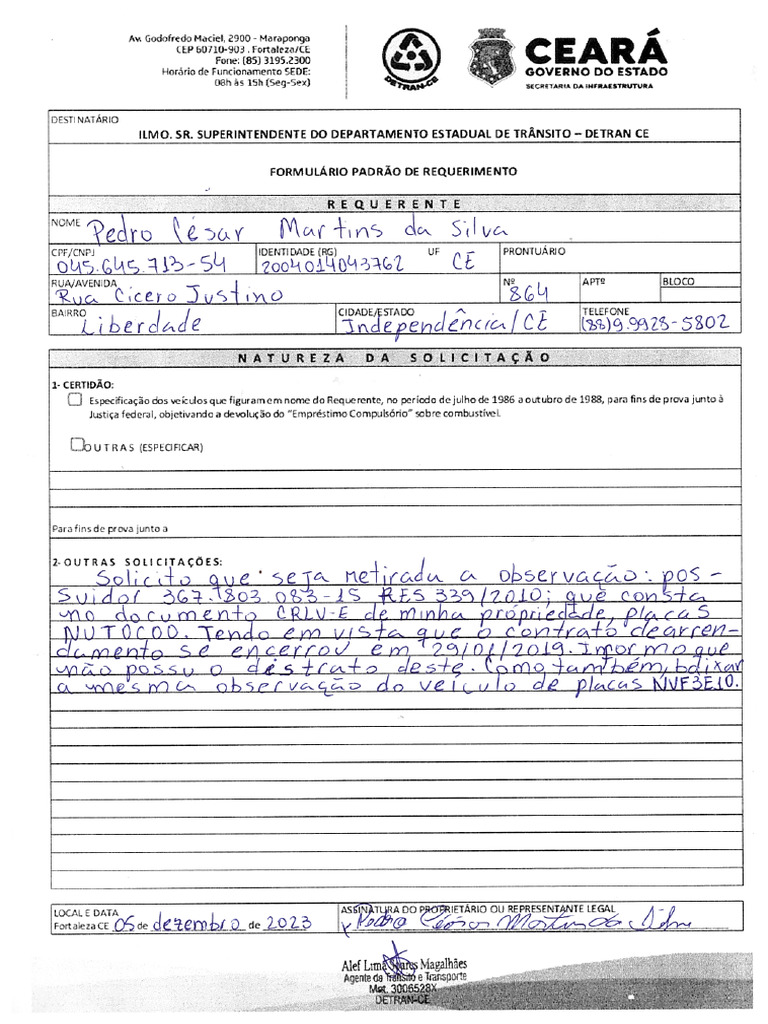 Av. Godofredo Maciel, 2900 - Maraponga
CEP 60710-903 . Fortaleza/CE
Fone: (85) 3195.2300
Horário de Funcionamento SEDE:
08h às 15h (Seg-Sex)
DETRAN-CE
CEARÁ
GOVERNO DO ESTADO
SECRETARIA DA INFRAESTRUTURA
DESTINATÁRIO
ILMO. SR. SUPERINTENDENTE DO DEPARTAMENTO ESTADUAL DE TRÂNSITO – DETRAN CE
FORMULÁRIO PADRÃO DE REQUERIMENTO
REQUERENTE
NOME Pedro César Martins da Silva
CPF/CNPJ IDENTIDADE (RG) UF PRONTUÁRIO
045.645.713-54 2004014043762 CE
RUA/AVENIDA Nº APTº BLOCO
Rua Cicero Justino 864
BAIRRO CIDADE/ESTADO TELEFONE
Liberdade Independência/CE (88)9.9928-5802
NATUREZA DA SOLICITAÇÃO
1- CERTIDÃO:
Especificação dos veículos que figuram em nome do Requerente, no período de julho de 1986 a outubro de 1988, para fins de prova junto à
Justiça federal, objetivando a devolução do "Empréstimo Compulsório" sobre combustível.
OUTRAS (ESPECIFICAR)
Para fins de prova junto a
2- OUTRAS SOLICITAÇÕES:
Solicito que seja retirada a observação: pos-
suidor 367.803.083-15 RES 339/2010; que consta
no documento CRLV-E de minha propriedade, placas
NUTOCOO. Tendo em vista que o contrato de arren-
damento se encerrou em 29/01/2019. Informo que
não possu o destrato deste. Como também, baixar
a mesma observação do veículo de placas NVF3E10.
LOCAL E DATA ASSINATURA DO PROPRIETÁRIO OU REPRESENTANTE LEGAL
Fortaleza CE 05 de dezembro de 2023 x Pedro César Martins da Silva
Alef Lima Nunes Magalhães
Agente de Trânsito e Transporte
Mat. 3006528X
DETRAN-CE